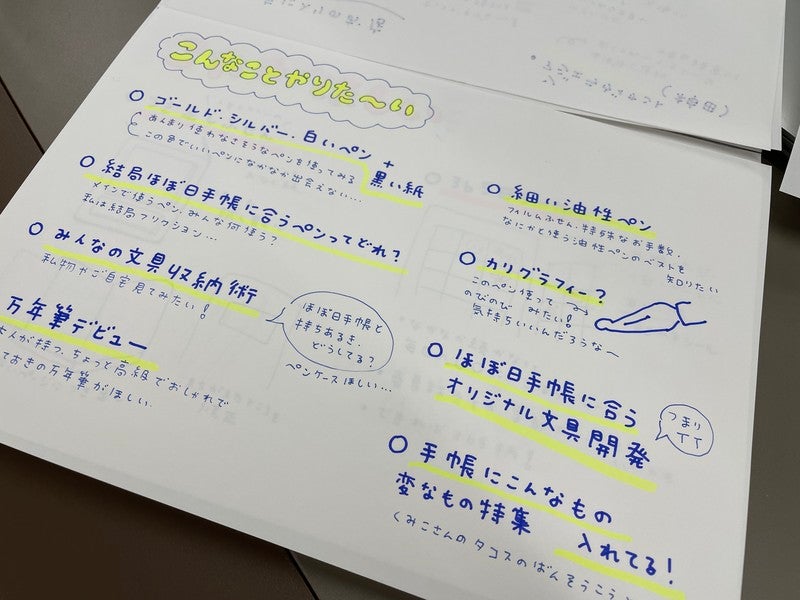 こんなことやりた〜い
○ ゴールド・シルバー・白いペン +
黒い紙
あんまり使わなさそうなペンを使ってみる
この色でいいペンになかなか出会えない…
○ 結局ほぼ日手帳に合うペンってどれ?
メインで使うペン、みんな何使う?
私は結局フリクション…
○ みんなの文具収納術
私物やご自宅見てみたい!
ほぼ日手帳と
持ちあるき、
どうしてる?
ペンケースほしい…
万年筆デビュー
大人が持つ、ちょっと高級でおしゃれで
ておきの万年筆がほしい
○ 細い油性ペン
フィルムふせん、特殊なお手数、
なにかと使う油性ペンのベストを
知りたい
○ カリグラフィー?
このペン使って
のびのび みたい!
気持ちいいんだろうな〜
○ ほぼ日手帳に合う
オリジナル文具開発
つまり
TT
○ 手帳にこんなもの
変なもの特集 入れてる!
くみこさんのタコスのばんそうこう